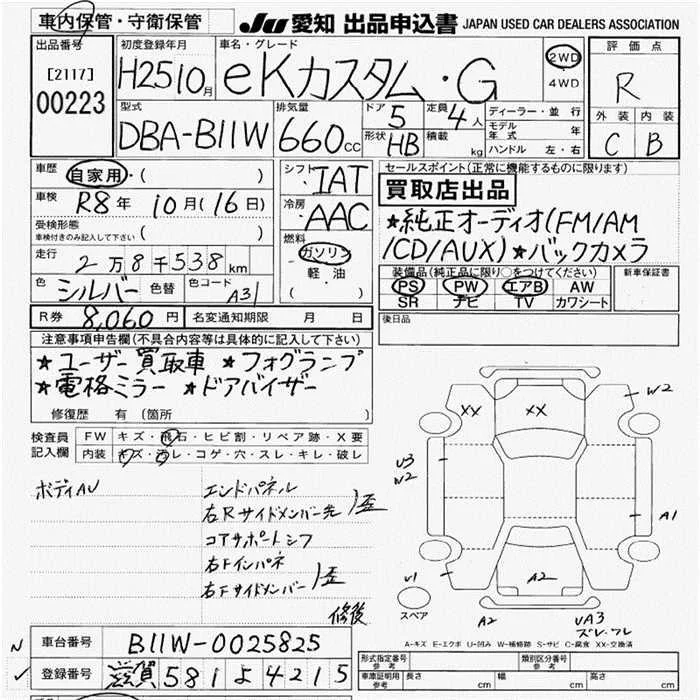 車内保管・守衛保管 JU 愛知 出品申込書 JAPAN USED CAR DEALERS ASSOCIATION
出品番号 [2117] 00223
初度登録年月 H25 10月
車名・グレード eKカスタム・G
2WD 4WD
評価点 R
外装 内装 C B
型式 DBA-B11W
排気量 660cc
ドア 5 形状 HB
定員 4人 積載 kg
ディーラー・並行
モデル年式 年
ハンドル 左・右
車歴 自家用・( )
車検 R8年 10月(16日)
受検形態 車検付きのみ記入して下さい ( )
走行 2万8千538km
色 シルバー 色替 色コード A31
シフト IAT
冷房 AAC
燃料 ガソリン 軽油 ( )
セールスポイント(正常に機能するものに限ります)
買取店出品
★純正オーディオ(FM/AM
/CD/AUX)★バックカメラ
装備品(純正品に限り○をつけてください) 新車保証書
PS PW エアB AW
SR ナビ TV カワシート
後日品
R券 8,060円 名変通知期限 月 日
注意事項申告欄(不具合内容等は具体的に記入して下さい)
★ユーザー買取車 ★フォグランプ
★電格ミラー ★ドアバイザー
修復歴 有 (箇所 )
検査員記入欄
FW キズ・飛石・ヒビ割・リペア跡・X要
内装 キズ・汚レ・コゲ・穴・スレ・キレ・破レ
ボディAU
エンドパネル
右Rサイドメンバー先 歪
コアサポートシフ
右Fインパネ
右Fサイドメンバー 歪
修後
XX XX W2
U3
W2
A1
U1 A2
スペア A2 UA3
ズレ・ワレ
A-キズ E-エクボ U-凹み W-補修跡 S-サビ C-腐食 XX-交換済
N 車台番号 B11W-0025825
✓ 登録番号 滋賀 581 よ 4215
形式指定番号 参考 類別区分番号 参考
車庫証明用 参考 長さ cm 幅 cm 高さ cm